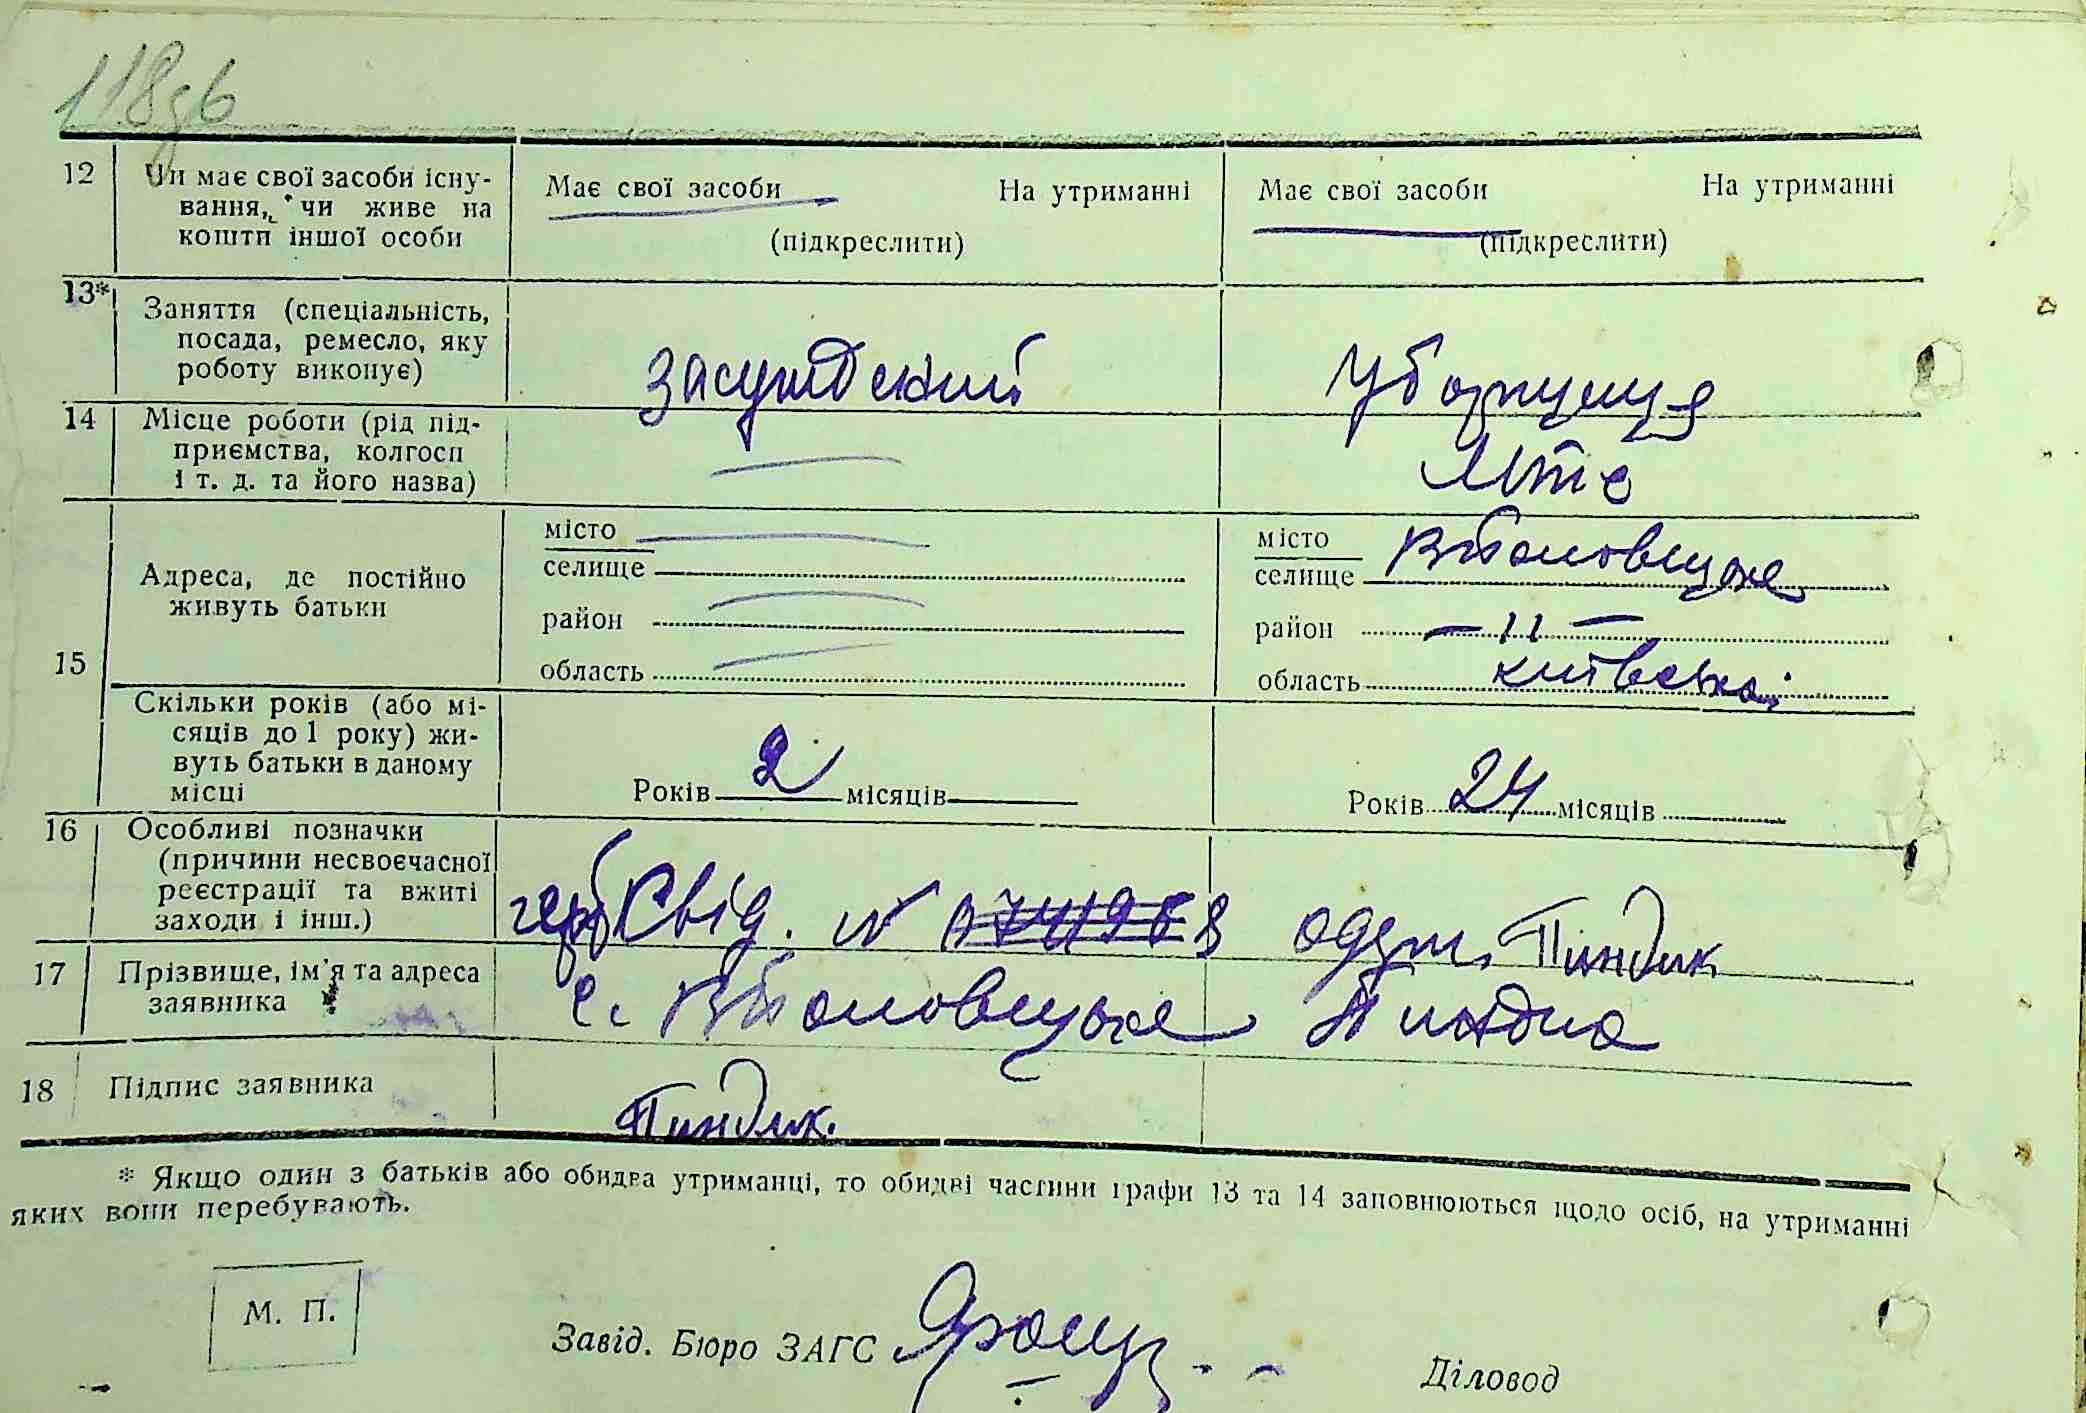 118зв
12 Чи має свої засоби існу-
вання, чи живе на
кошти іншої особи
Має свої засоби На утриманні
(підкреслити)
Має свої засоби На утриманні
(підкреслити)
13* Заняття (спеціальність,
посада, ремесло, яку
роботу виконує)
Засуждений
Уборщиця
14 Місце роботи (рід під-
приємства, колгосп
і т. д. та його назва)
—
Мтс
15 Адреса, де постійно
живуть батьки
місто
селище
район
область
місто
селище
район — 11 —
область київська
Скільки років (або мі-
сяців до 1 року) жи-
вуть батьки в даному
місці
Років 2 місяців
Років 24 місяців
16 Особливі позначки
(причини несвоєчасної
реєстрації та вжиті
заходи і інш.)
герб Свід. № одерж. Пиндик
17 Прізвище, ім'я та адреса
заявника
с.
18 Підпис заявника
Пиндик.
* Якщо один з батьків або обидва утриманці, то обидві частини графи 13 та 14 заповнюються щодо осіб, на утриманні
яких вони перебувають.
М. П.
Завід. Бюро ЗАГС
Діловод